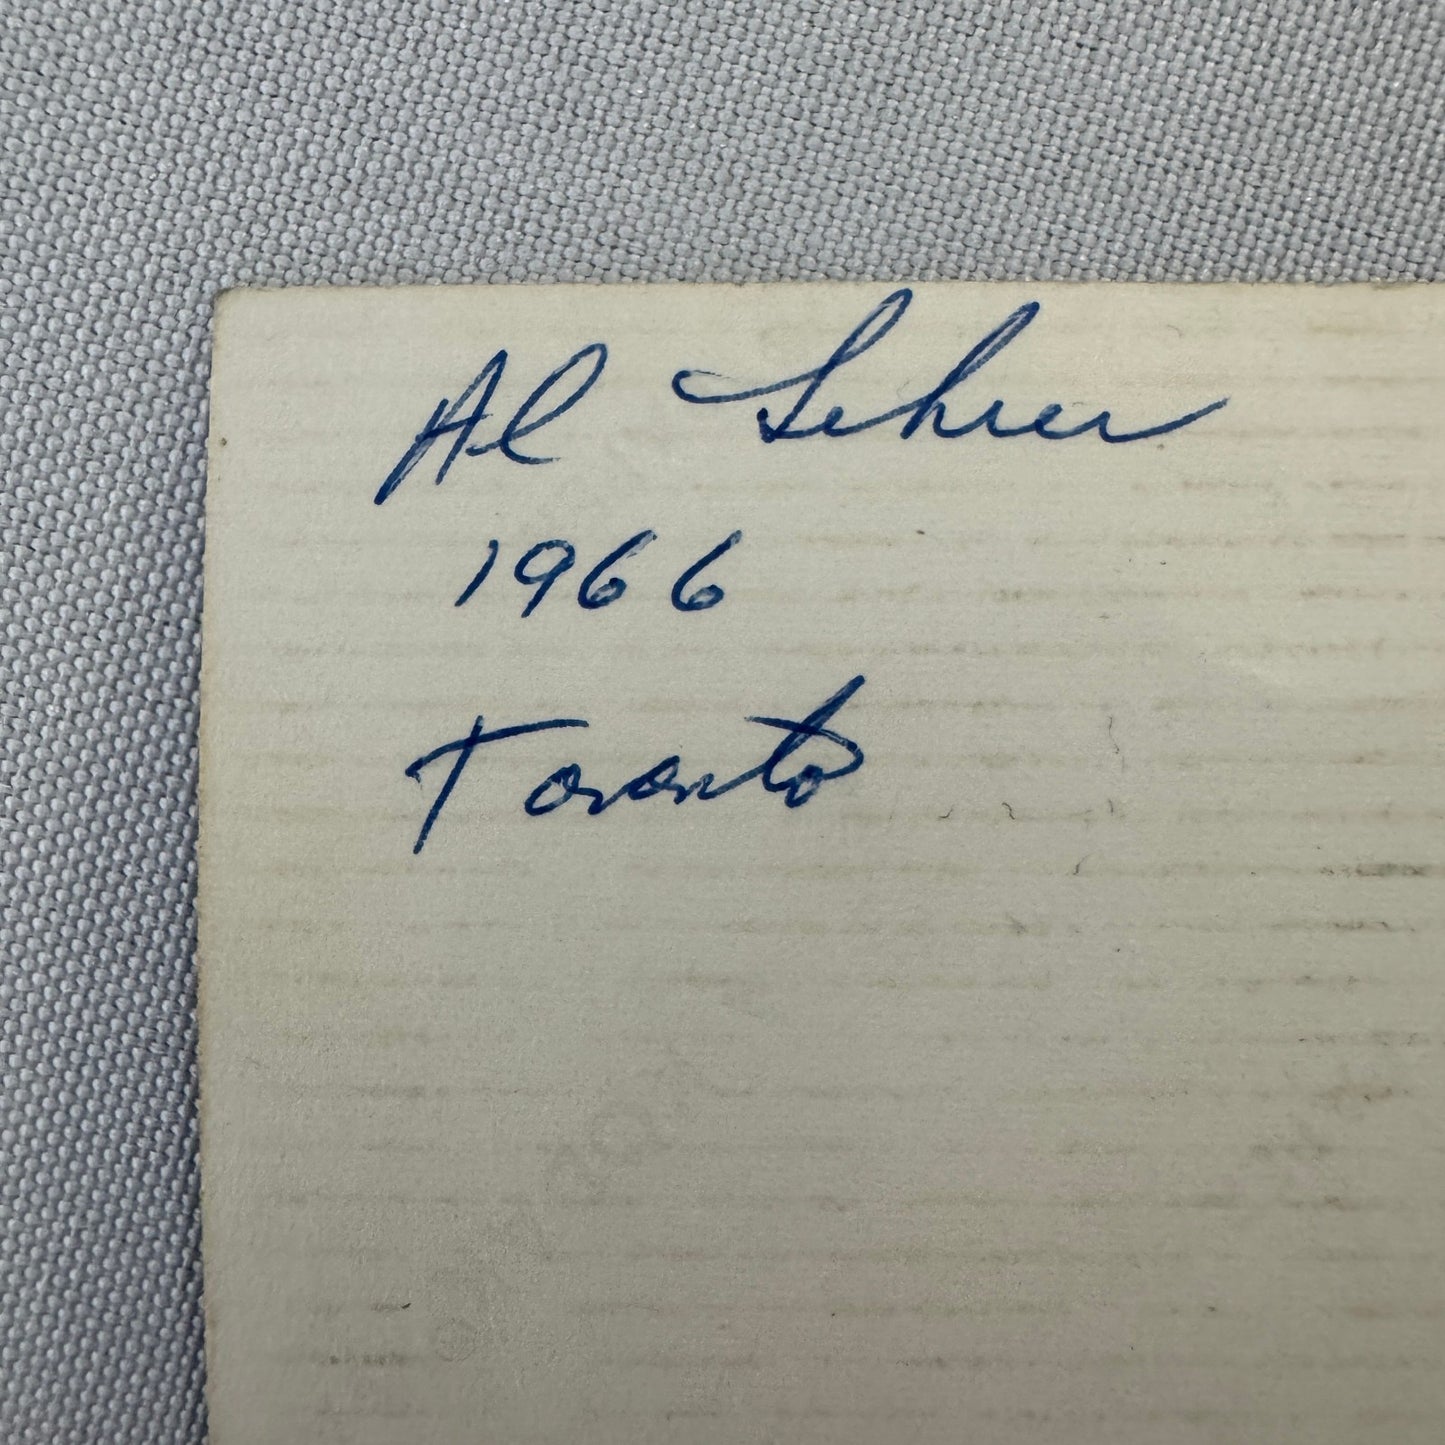 Al Lehrer
1966
Toronto